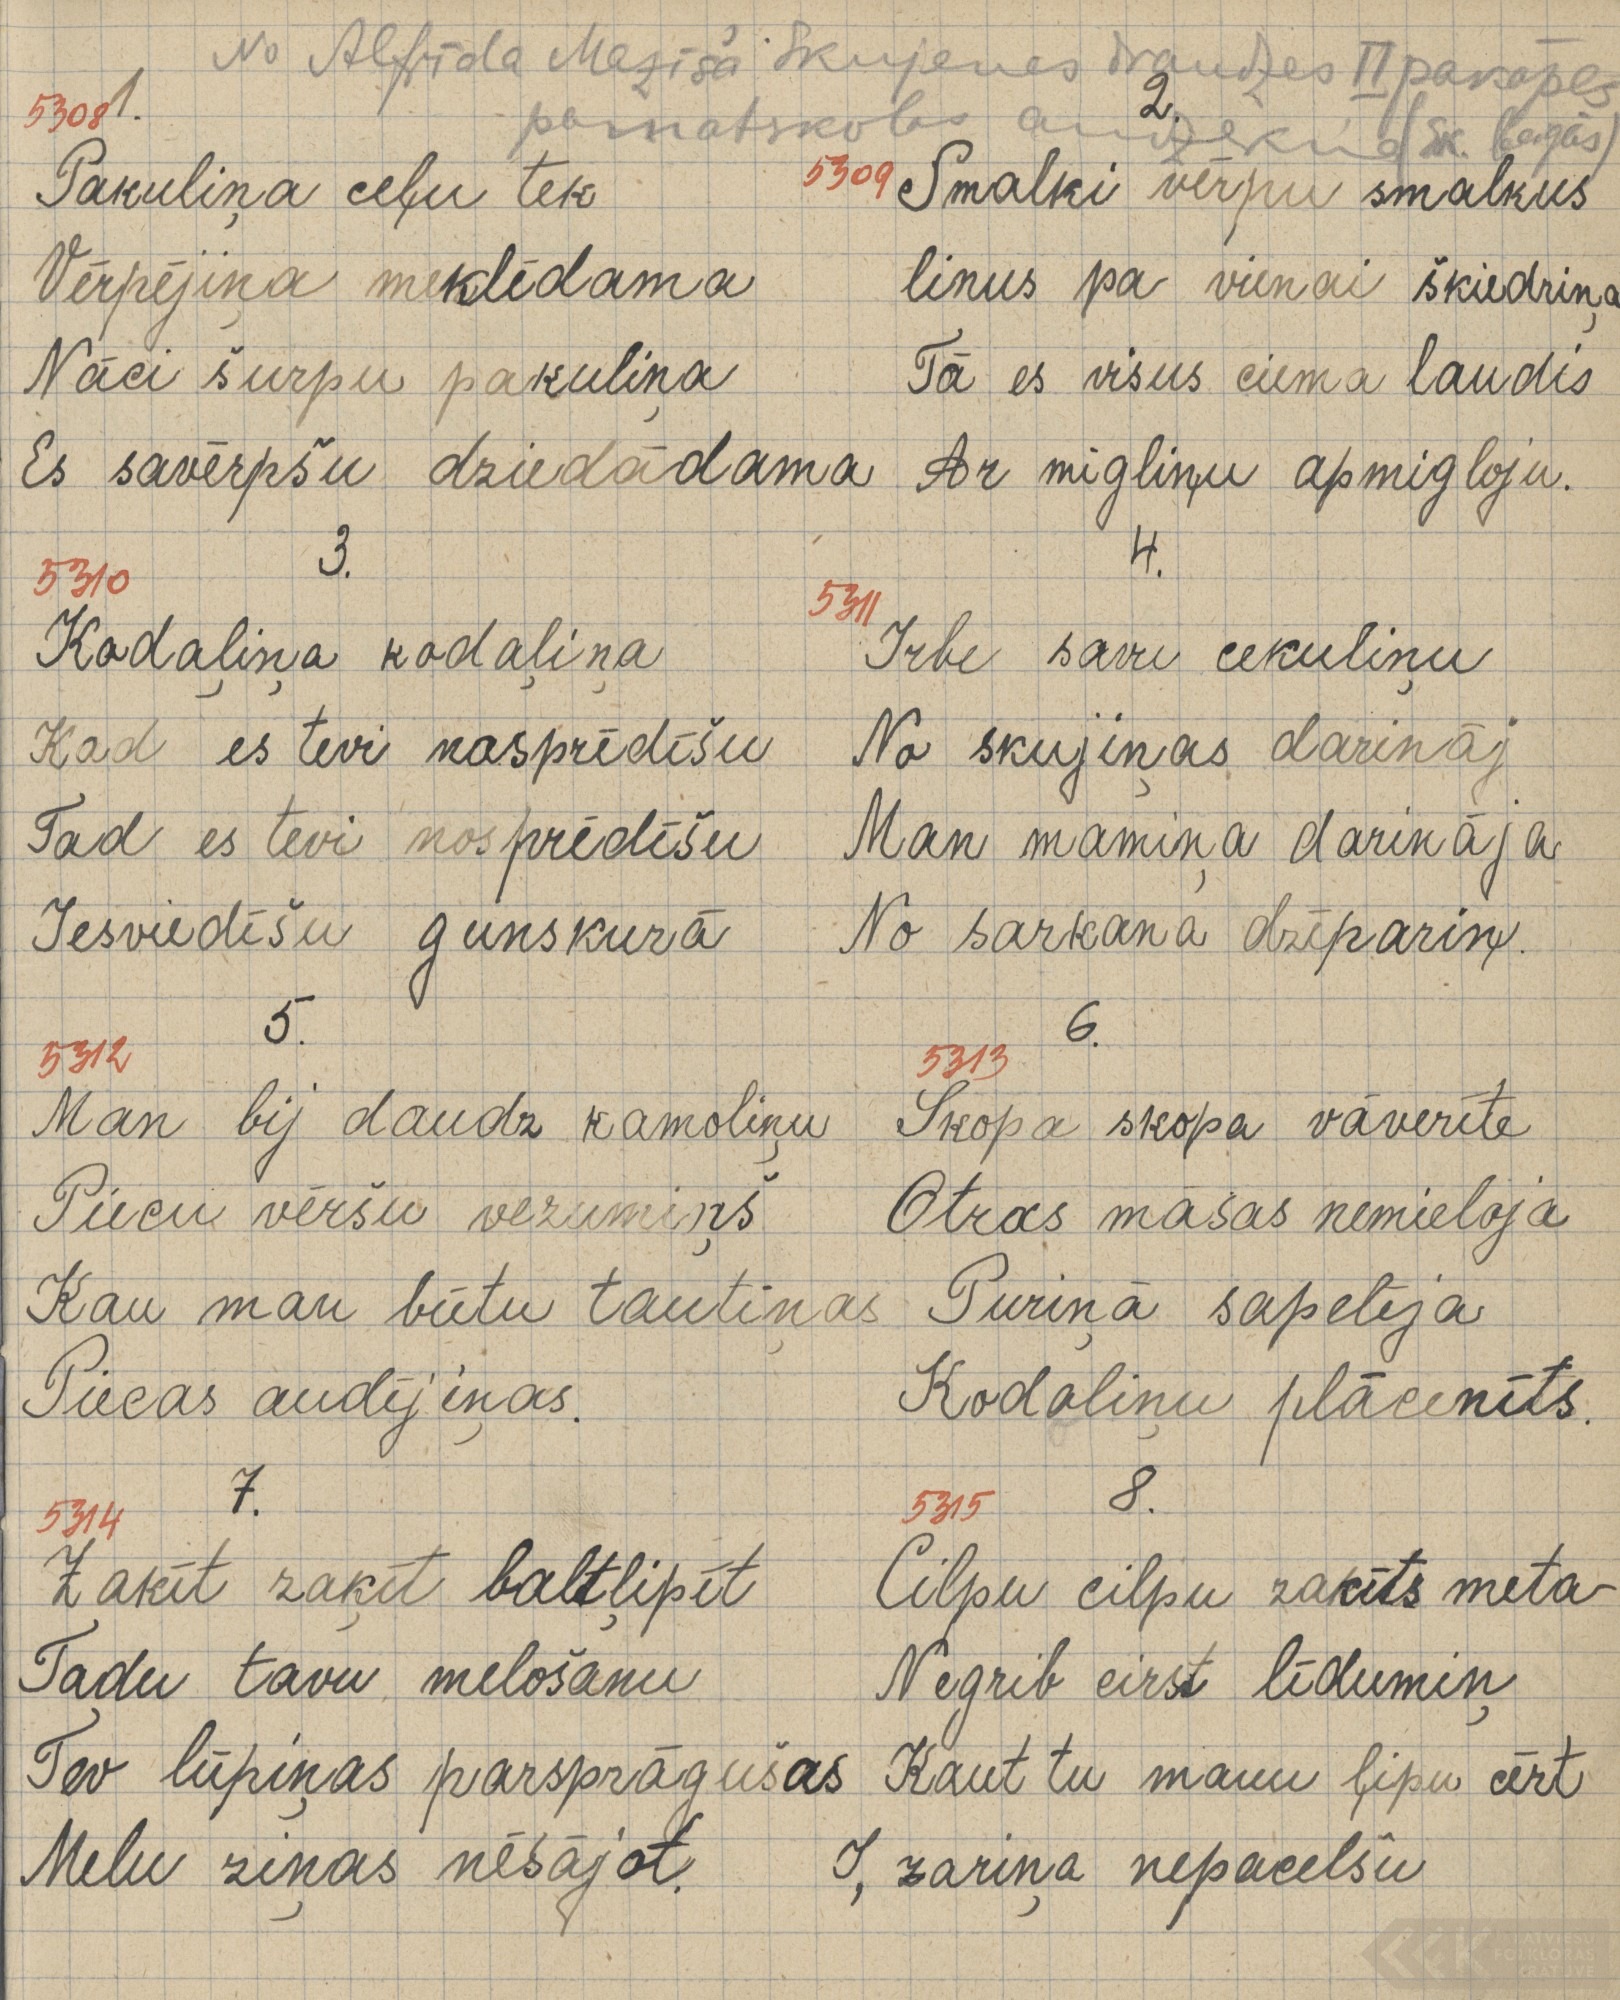 No Alfrīda Mazīša Skujenes draudzes II pakāpes
pamatskolas audzēkņa (Sk. kopās)
5308 1.
Pakuliņa ceļu tek
Vērpējiņa meklēdama
Nāci šurpu pakuliņa
Es savērpšu dziedādama
2.
5309 Smalki vērpu smalkus
linus pa vienai škiedriņa
Tā es visus ciema laudis
Ar migliņu apmigloju.
3.
5310
Kodaļiņa kodaļiņa
Kad es tevi nosprēdīšu
Tad es tevi nosprēdīšu
Iesviedīšu gunskurā
4.
5311
Irbe savu cekuliņu
No skujiņas darināj
Man mamiņa darināja
No sarkana dzīpariņ.
5.
5312
Man bij daudz kamoliņu
Piecu vēršu vezumiņš
Kau man būtu tautiņas
Piecas audējiņas.
6.
5313
Skopa skopa vāverīte
Otras māsas nemieloja
Puriņā sapelēja
Kodaliņu plācenīts.
7.
5314
Zaķīt zaķīt baltļipīt
Tadu tavu melošanu
Tev lūpiņas parsprāgušas
Melu ziņas nēsājot.
8.
5315
Cilpu cilpu zaķīts meta
Negrib cirst līdumiņ
Kaut tu manu ļipu cērt
I, zariņa nepacelšu
LATVIEŠU
FOLKLORAS
KRĀTUVE